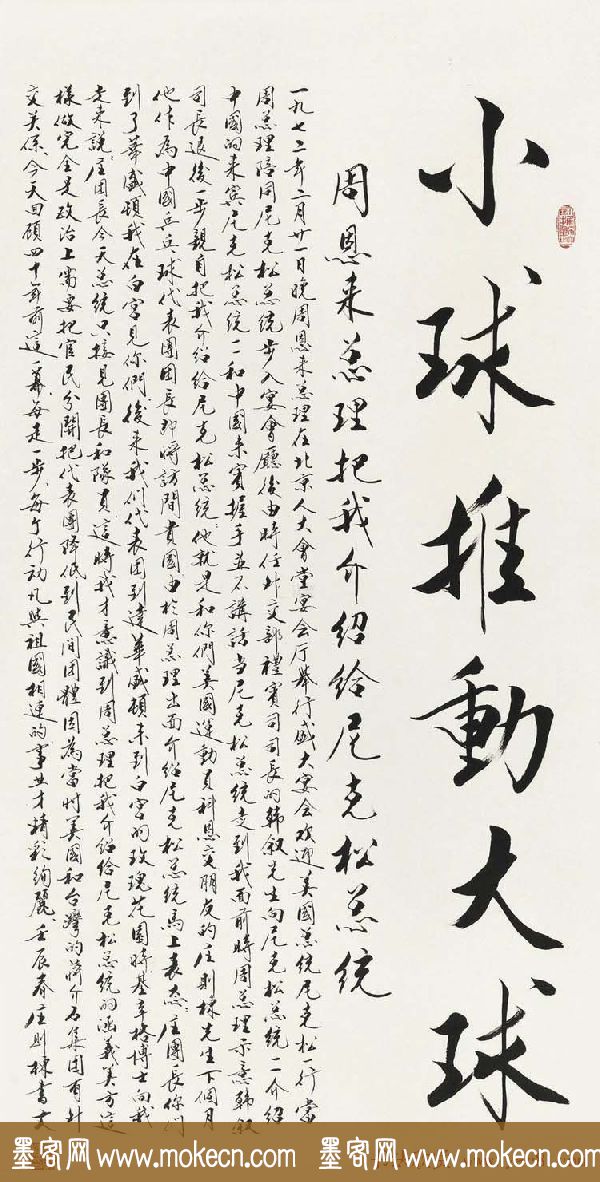 小球推動大球
周恩来总理把我介紹給尼克松总统
一九七二年二月廿一日晚周恩来总理在北京人大會堂宴会厅举行盛大宴会欢迎美國总统尼克松一行當
周总理陪同尼克松总统步入宴會廳後由時任外交部禮賓司司長的韩叙先生向尼克松总统一一介绍
中國的来宾尼克松总统一一和中國来賓握手並不講話当尼克松总统走到我面前時周总理示意韩叙
司長退後一步親自把我介绍给尼克松总统他就是和你們美國運動員科恩交朋友的庄则棟先生下個月
他作為中國乒乓球代表團團長即將訪問貴國由於周总理出面介绍尼克松总统馬上表态庄團長你們
到了華盛頓我在白宫見你們後来我们代表团到達華盛頓来到白宫的玫瑰花園時基辛格博士向我
走来說庄团長今天总统只接見團長和隊員這時我才意識到周总理把我介绍给尼克松总统的涵義美方這
樣做完全是政治上需要把官民分開把代表團降低到民间团體因為當时美國和台灣的蒋介石集团有外
交关係今天回顾四十年前這一幕每走一步每个行动凡與祖國相連的事业才精彩絢麗壬辰春庄则棟書文
墨客网 www.mokecn.com 墨客网 www.mokecn.com